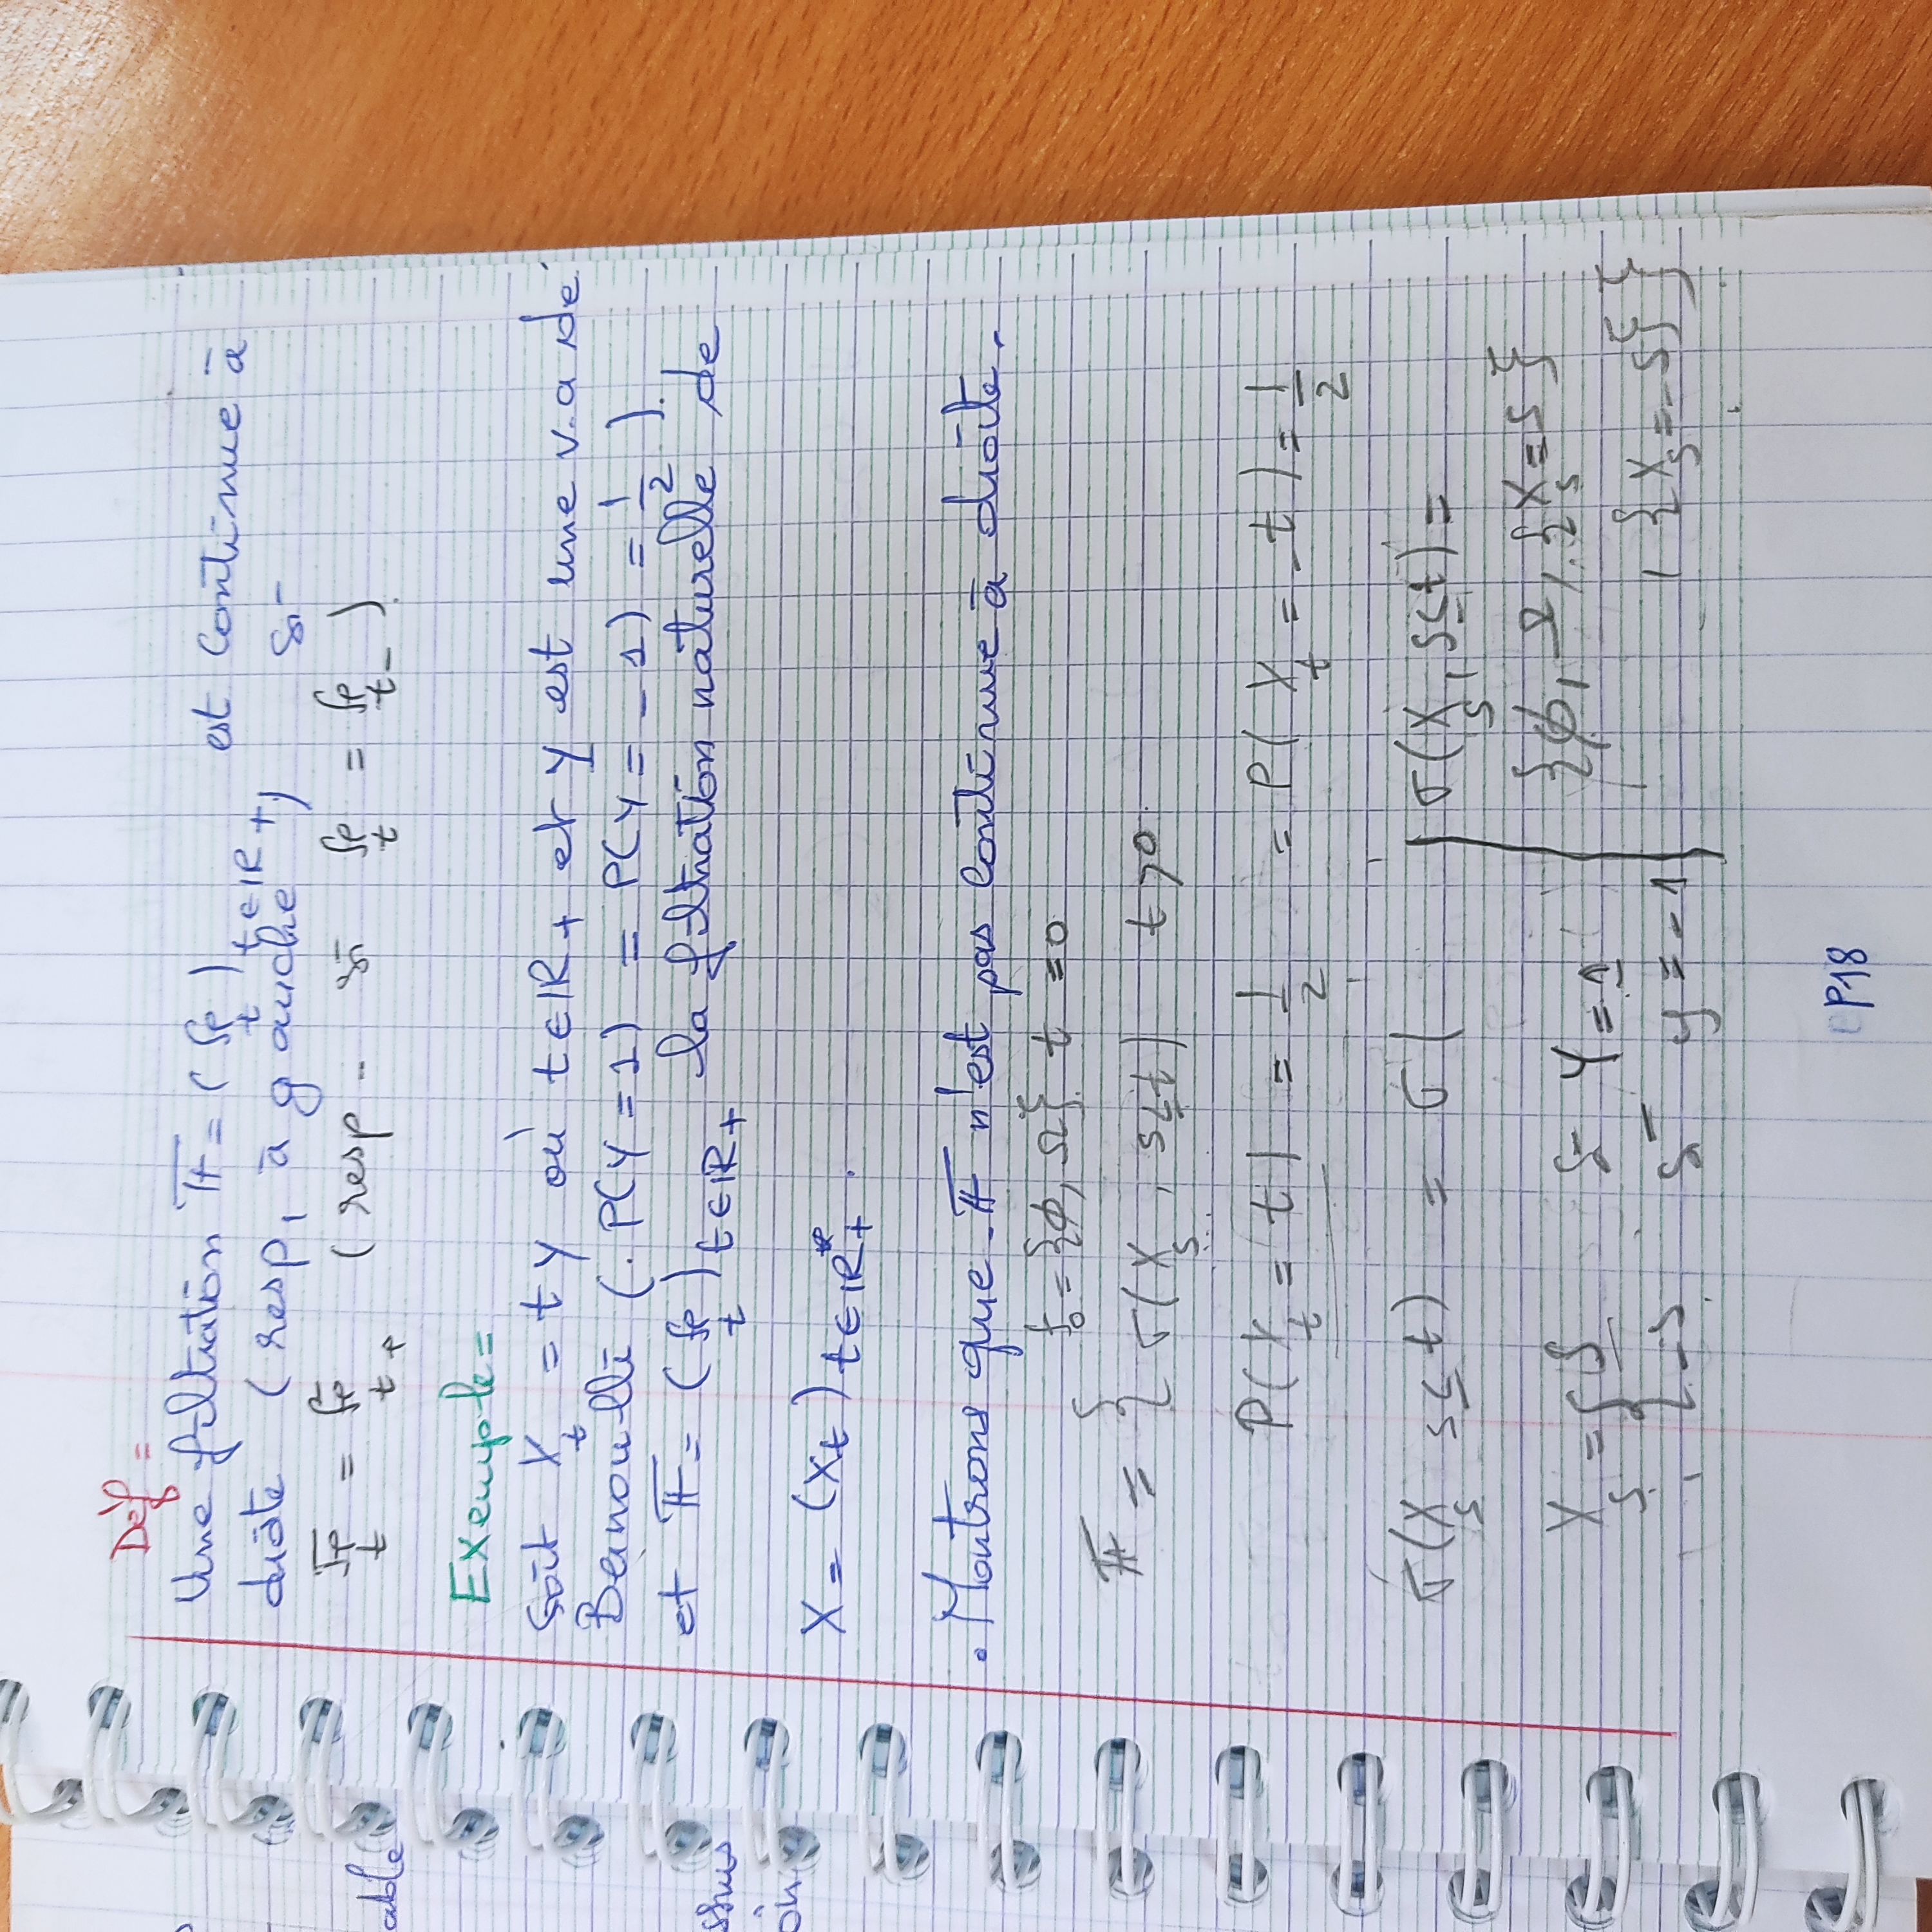 Déf =
Une filtration 𝔽 = (ℱ_t)_{t∈ℝ+} est continue à
droite (resp, à gauche) si
ℱ_t = ℱ_{t+} (resp - si ℱ_t = ℱ_{t-}).
Exemple =
soit X_t = t Y où t∈ℝ+ et Y est une v.a de
Bernoulli (. P(Y = 1) = P(Y = -1) = 1/2 ).
et 𝔽 = (ℱ_t)_{t∈ℝ+} la filtration naturelle de
X = (X_t)_{t∈ℝ*+} .
. Montrons que 𝔽 n'est pas continue à droite.
𝔽 = { f_0 = {∅, Ω} t = 0
σ(X_s , s≤t) t>0.
P(X_t = t) = 1/2 = P(X_t = -t) = 1/2
σ(X_s s≤t) = σ(
X_s = { s si Y = 1
-s si y = -1
σ(X_s, s≤t) =
{∅, Ω, {X_s = s}
, {X_s = -s}}
able
ssus
on
P18